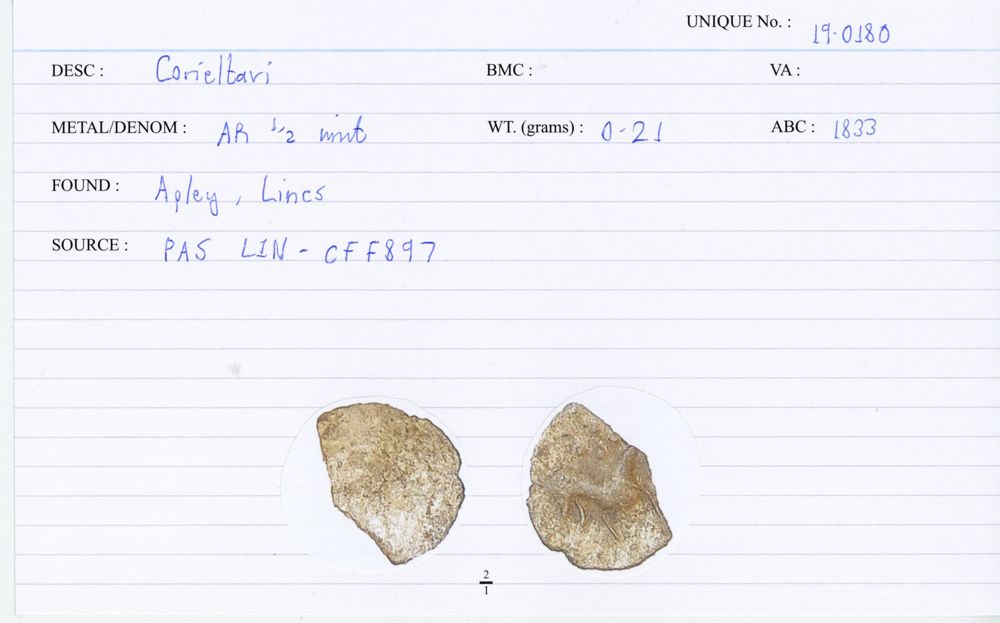 UNIQUE No. : 19.0180
DESC : Corieltavi BMC : VA :
METAL/DENOM : AR ½ unit WT. (grams) : 0-21 ABC : 1833
FOUND : Apley, Lincs
SOURCE : PAS LIN - CFF897
2
1